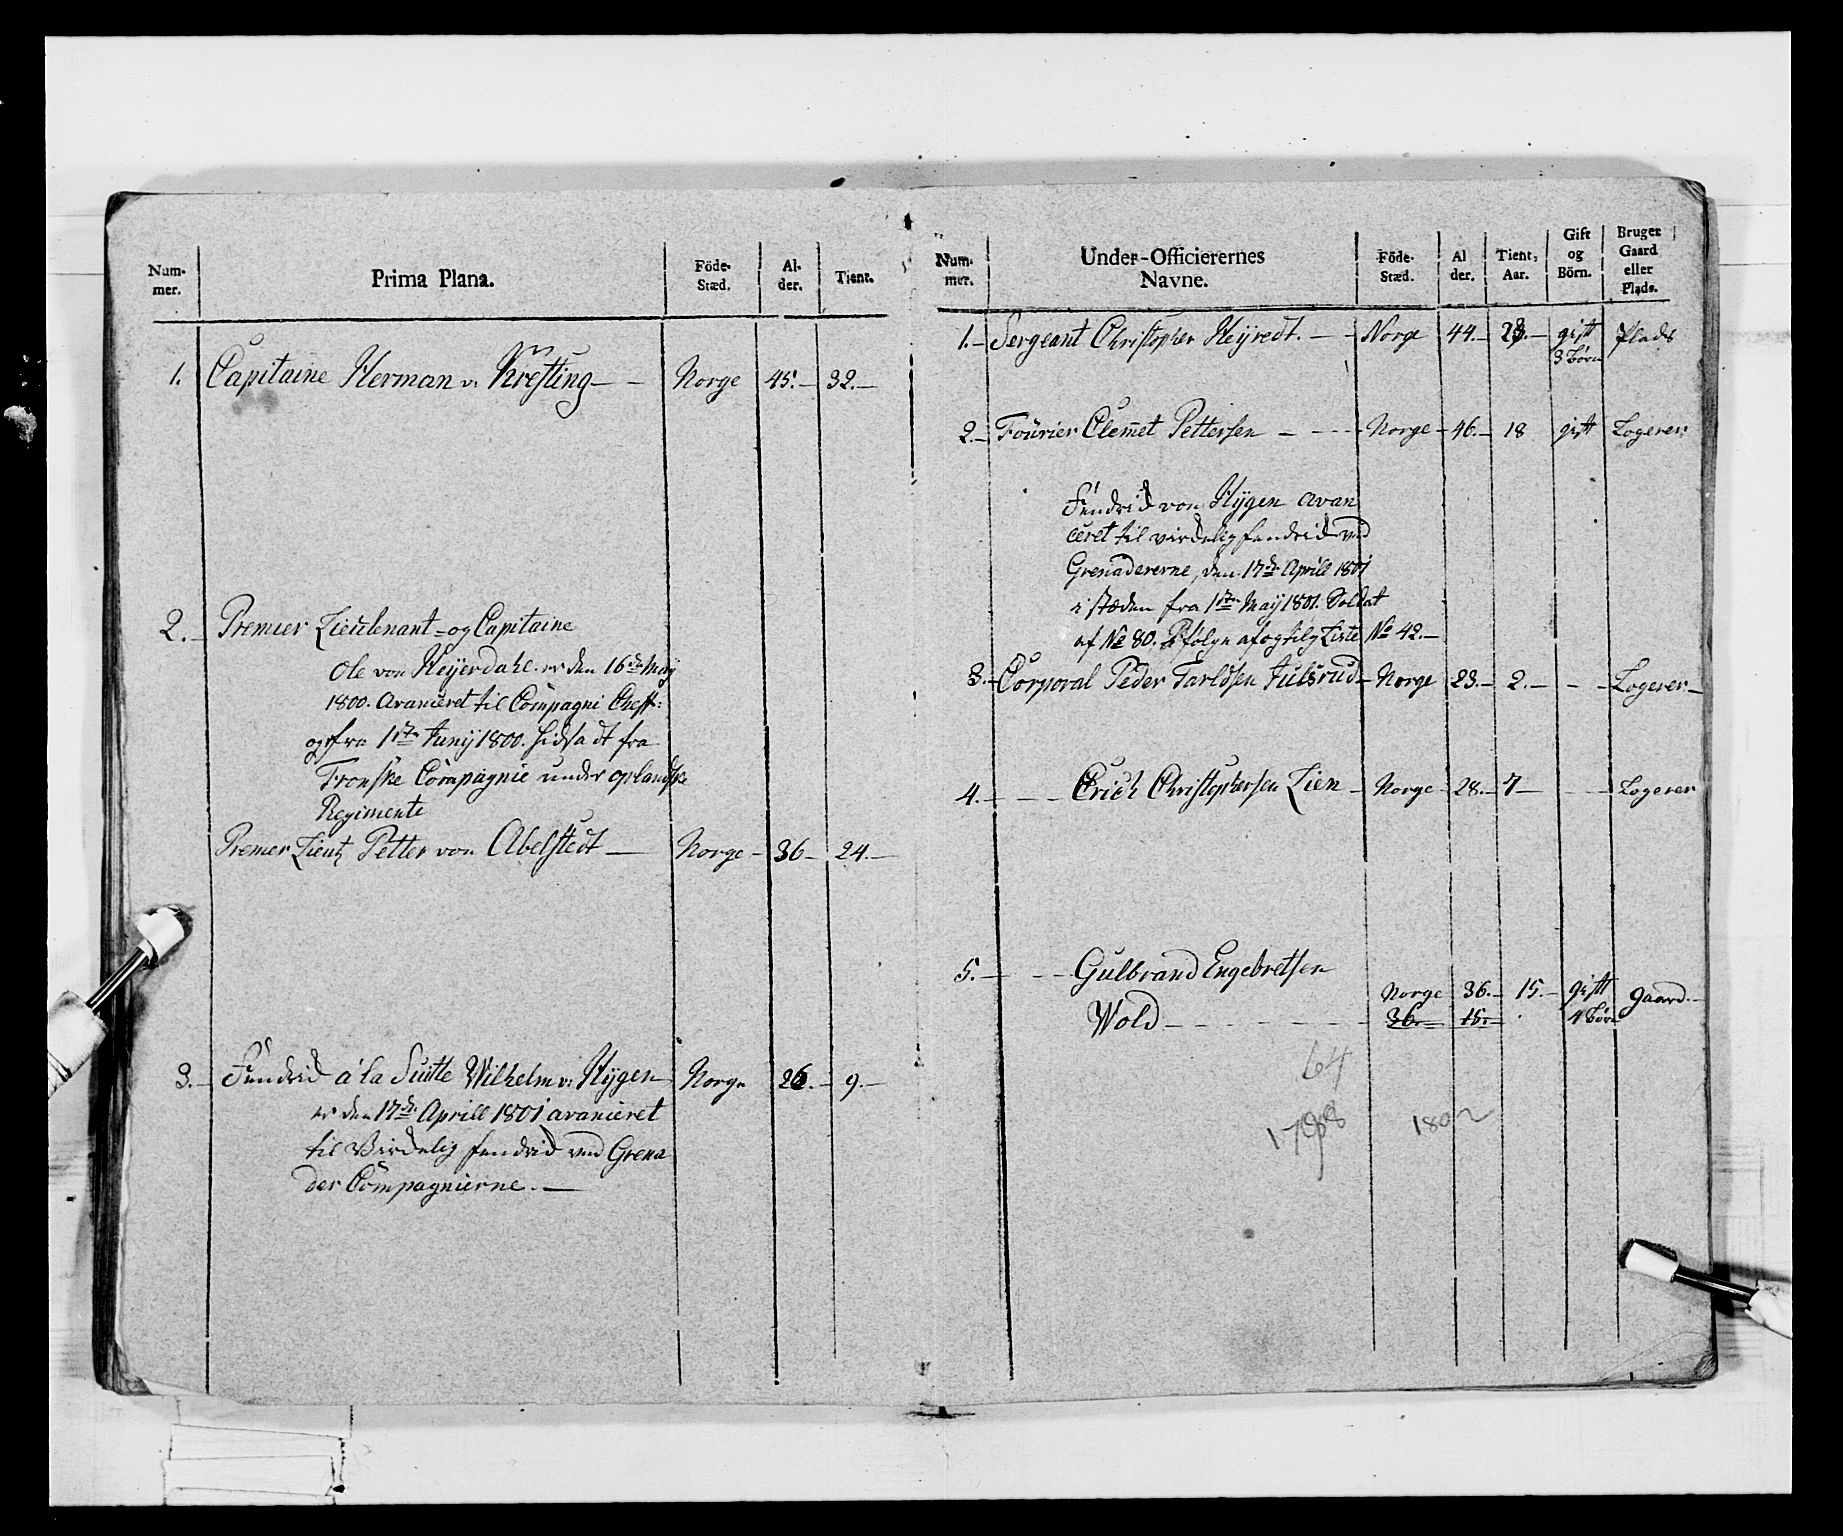 Num-
mer.
Prima Plana.
Föde-
Stæd.
Al-
der.
Tient.
1. Capitaine Herman v. Krefting — — Norge 45.— 32.—
2.— Premier Lieutenant og Capitaine
Ole von Heyerdahl er den 16de May
1800. Avanceret til Compagni Cheff:
og fra 1ste Junij 1800. hidsadt fra
Fronske Compagnie under oplandske
Regimente
Premier Lieut Petter von Abelstedt — Norge — 36 — 24.—
3.— Fendrid a la Suitte Wilhelm v: Hygen Norge 26.— 9.—
er den 17de Aprill 1801 avanceret
til Virkelig fendrid ved Grena
der Compagnierne.—
Num-
mer.
Under-Officierernes
Navne.
Föde-
Stæd.
Al
der.
Tient,
Aar.
Gift
og
Börn.
Bruger
Gaard
eller
Plads.
1.— Sergeant Christopher Heyredt. — Norge 44.— 28.— gift Plads
3 Börn
2.— Fourier Clem̄et Pettersen — - - - Norge — 46.— 18 gift Logerer
Fendrid von Hygen avan
ceret til virkelig fendrid ved
Grenadererne, den 17de Aprill 1801
i stæden fra 1ste May 1801. Soldat
af No 80. følge afogtilg Liste No 42.—
3.— Corporal Peder Tarldsen Julsrud — Norge 23.— 2.— - — Logerer —
4.— — — Erich Christophersen Lien — Norge — 28.— 7 — — Logerer
5.— — — Gulbrand Engebretsen
Norge 36.— 15.— gift gaard.—
Wold — - - - - - 36.— 15.— 4 Börn
64
1798 1802